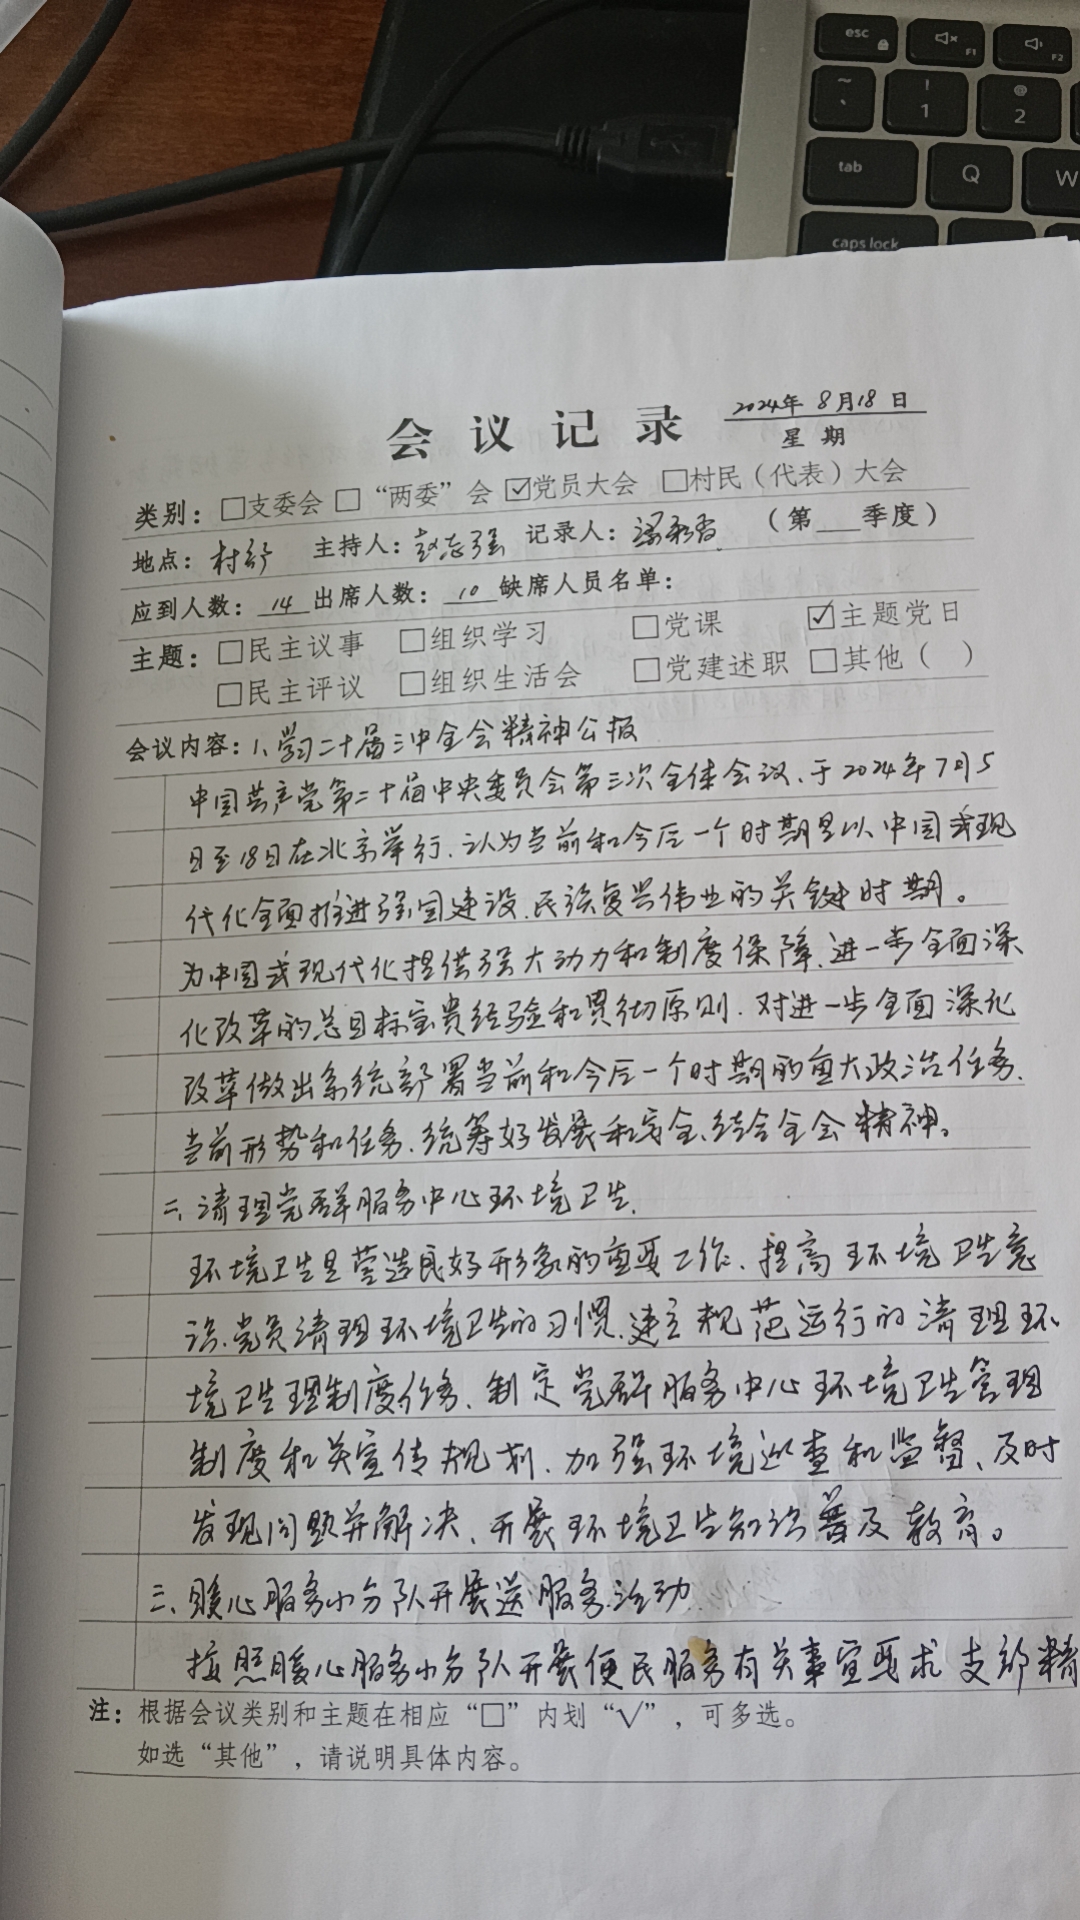 esc
F1
F2
~
`
!
1
@
2
tab
Q
W
caps lock
会议记录 2024年 8月18日
星期
类别：□支委会 □“两委”会 ☑党员大会 □村民（代表）大会
地点：村 主持人：赵志强 记录人： （第 季度）
应到人数：14 出席人数：10 缺席人员名单：
主题：□民主议事 □组织学习 □党课 ☑主题党日
□民主评议 □组织生活会 □党建述职 □其他（ ）
会议内容：1、学习二十届三中全会精神公报
中国共产党第二十届中央委员会第三次全体会议、于2024年7月5
日至18日在北京举行、认为当前和今后一个时期是以中国式现
代化全面推进强国建设、民族复兴伟业的关键时期。
为中国式现代化提供强大动力和制度保障、进一步全面深
化改革的总目标宝贵经验和贯彻原则、对进一步全面深化
改革做出系统部署当前和今后一个时期的重大政治任务、
当前形势和任务、统筹好发展和安全、结合全会精神。
二、清理党群服务中心环境卫生、
环境卫生是营造良好形象的重要工作、提高环境卫生意
识、党员清理环境卫生的习惯、建立规范运行的清理环
境卫生理制度任务、制定党群服务中心环境卫生管理
制度和关宣传规划、加强环境巡查和监督、及时
发现问题并解决、开展环境卫生知识普及教育。
三、暖心服务小分队开展送服务活动
按照暖心服务小分队开展便民服务有关事宜要求 支部精
注：根据会议类别和主题在相应“□”内划“√”，可多选。
如选“其他”，请说明具体内容。